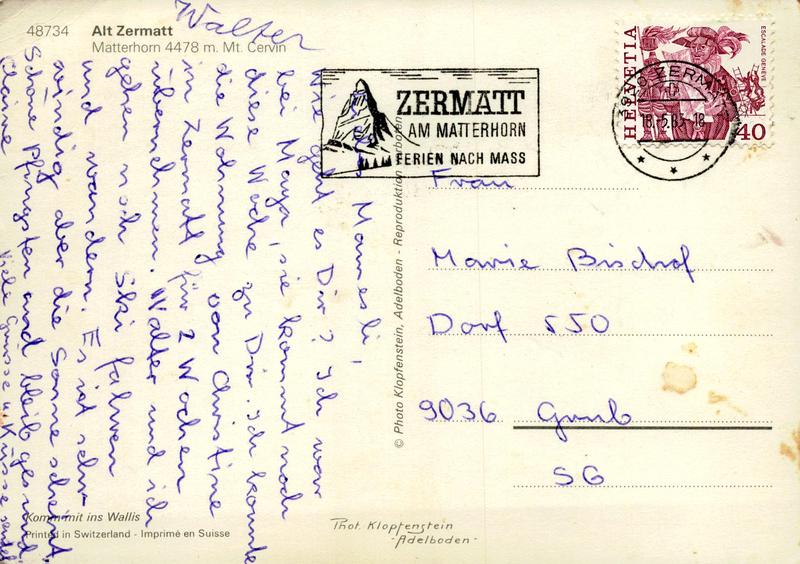 48734 Alt Zermatt
Matterhorn 4478 m. Mt. Cervin
Mamesli,
Wie geht es Dir? Ich war
bei Maya, sie kommt noch
diese Woche zu Dir. Ich konnte
die Wohnung von Christine
in Zermatt für 2 Wochen
übernehmen. Walter und ich
gehen noch Ski fahren
und wandern. Es ist sehr
windig aber die Sonne scheint.
Schöne Pfingsten und bleib gesund
Viele Grüsse u. Küsse sendet
Claire
Walter
Komm mit ins Wallis
Printed in Switzerland - Imprimé en Suisse
© Photo Klopfenstein, Adelboden - Reproduktion verboten
Phot. Klopfenstein
- Adelboden -
ZERMATT
AM MATTERHORN
FERIEN NACH MASS
3920 ZERMATT
18.-5.85-18
HELVETIA
ESCALADE GENÈVE
40
Frau
Marie Bischof
Dorf 550
9036 Grub
SG